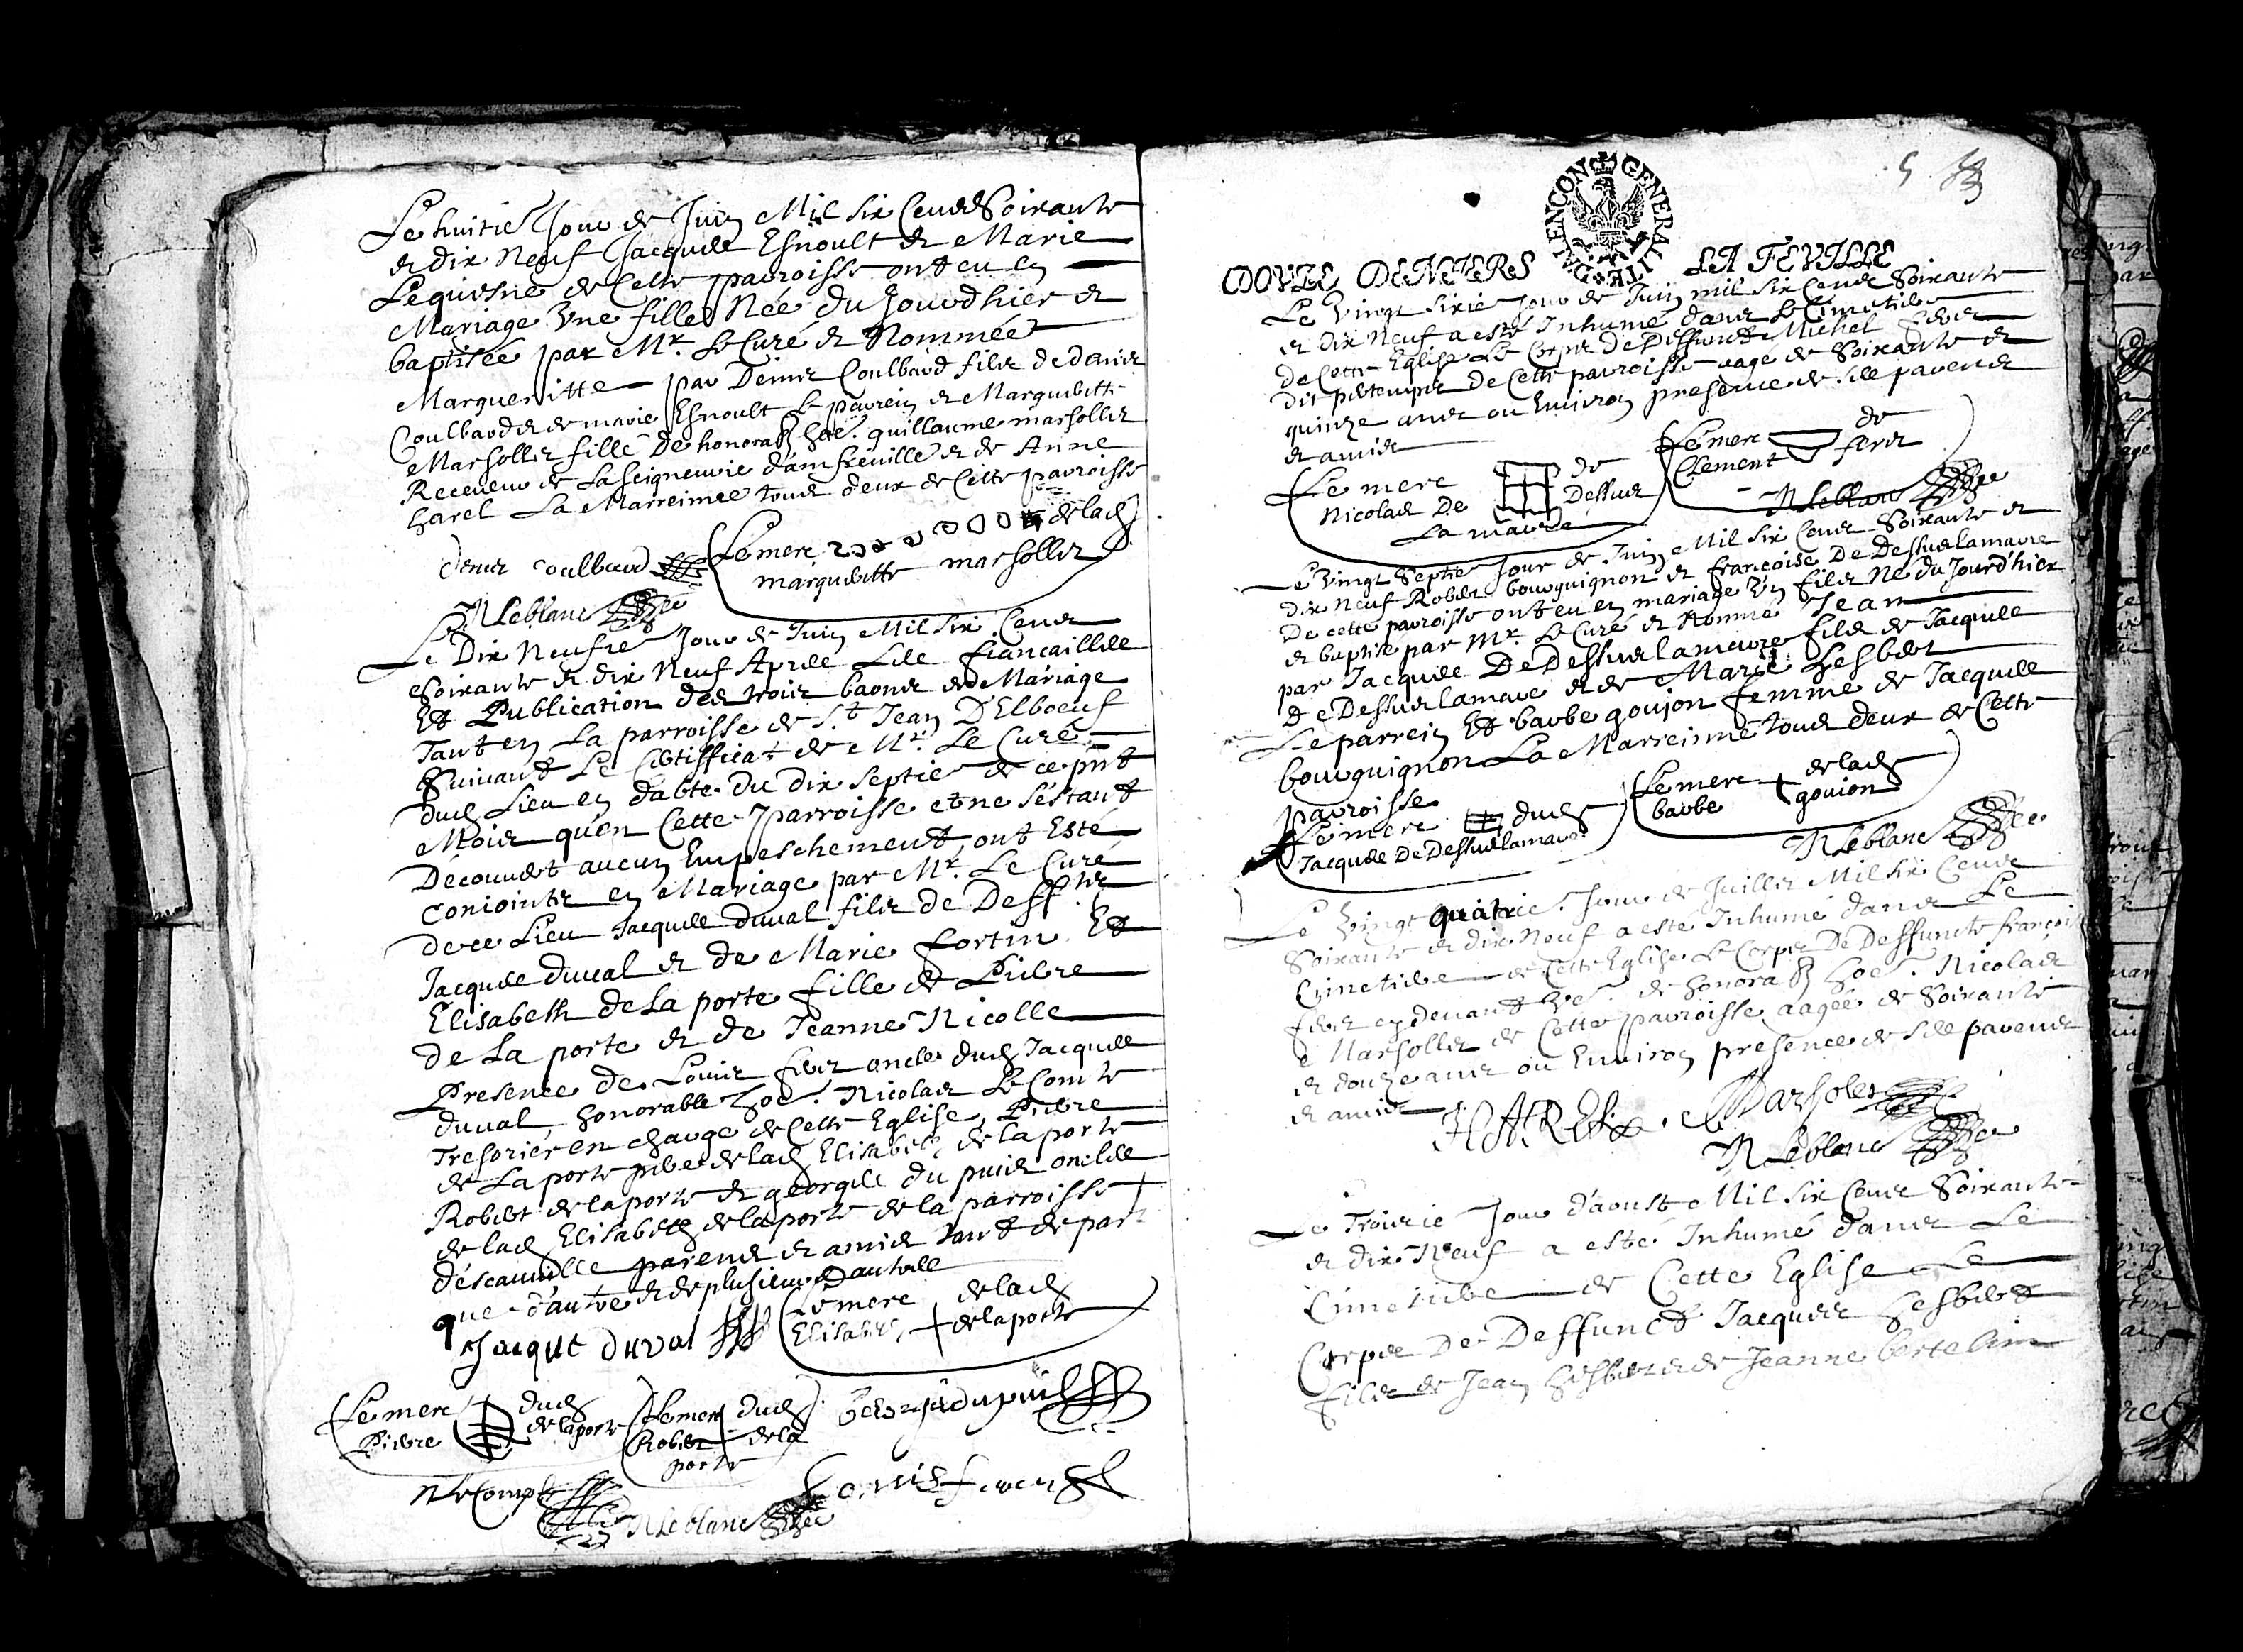 Le huitie Jour de Juin Mil six Cents Soixante
et dix Neuf Jacques Esnoult et Marie
Lequesne de Cette parroisse ont eu en
Mariage Vne fille Née du Jourdhier et
baptisée par Mr. Le Curé et Nommée
Margueritte par Denis Coulbard filz de denis
Coulbard et de marie Esnoult Le parrein et Margueritte
Marsollet fille De honorab guillaume marsollet
Receueur de La Seigneurie d'amfreuille et de Anne
harel La Marreinne tous deux de Cette parroisse
denis coulbard
Le merc de lad
margueritte marsollet
N Leblanc
Le Dix Neufie Jour de Juin Mil Six Cents
Soixante et dix Neuf Aprés Les fiancailles
Et Publication des trois banns de Mariage
Tant en La parroisse de S.t Jean D'Elboeuf
Suiuant Le Certifficat de Mr. Le Curé
dud Lieu en dabte du dix septie de ce pnt
Mois qu'en Cette parroisse et ne s'estant
Découuert aucun Empeschement, ont Esté
Conioints en Mariage par Mr. Le Curé
de ce Lieu Jacques duual filz de Deff
Jacques duual et de Marie fortin. Et
Elisabeth de La porte fille de Pierre
de La porte et de Jeanne Nicolle
Presence de Louis oncle dud Jacques
duual, honorable hoe. Nicolas Le Comte
Tresorier en charge de Cette Eglise, Pierre
de La porte pere de lad Elisabeth de la porte
Robert de la porte et georges du puis oncles
de lad Elisabeth de la porte de la parroisse
parens et amis tant de part
que d'autre et de plusieurs autres
Jacque duval
Le merc de lad
Elisabeth de la porte
Le merc dud
Pierre de la porte
Le merc dud
Robert de la
porte
dupuis
N leCompte
Louis
N Leblanc
5
GENERALITE D'ALENCON
DOVZE DENIERS LA FEVILLE
Le Vingt sixie Jour de Juin mil six Cents Soixante
et dix Neuf a esté Inhumé dans Le Cimetiere
de Cette Eglise Le Corps De Deffunct Michel
dit de Cette parroisse aagé de Soixante et
quinze ans ou Enuiron presence de ses parens
et amis
Le merc de
Nicolas De Dessus
La mare
Le merc de
Clement
N Leblanc
Le Vingt Septie Jour de Juin Mil Six Cents Soixante et
dix Neuf Robert bourguignon et francoise De Dessus lamare
De cette parroisse ont eu en mariage Vn filz Né du Jourd'hier
et baptisé par Mr. Le Curé et Nommé Jean
par Jacques De Dessus lamare filz de Jacques
De Dessus lamare et de Marie Hesbert
Le parrein Et barbe goujon femme de Jacques
bourguignon La Marreinne tous deux de Cette
parroisse
Le merc dud
Jacques De Dessus lamare
Le merc de lad
barbe goujon
N Leblanc
Le Vingt quatrie. Jour de Juillet Mil Six Cents
Soixante et dix Neuf a esté Inhumé dans Le
Cimetiere de Cette Eglise Le Corps De Deffuncte
en deuant de honorab hoe. Nicolas
Marsollet de Cette parroisse, aagée de Soixante
et douze ans ou Enuiron presence de ses parens
et amis
HAREL Marsolet
N Leblanc
Le Troisie Jour d'aoust Mil Six Cents Soixante
et dix Neuf a esté Inhumé dans Le
Cimetiere de Cette Eglise Le
Corps De Deffunct Jacques Hesbert
filz de Jean Hesbert et de Jeanne bertelin